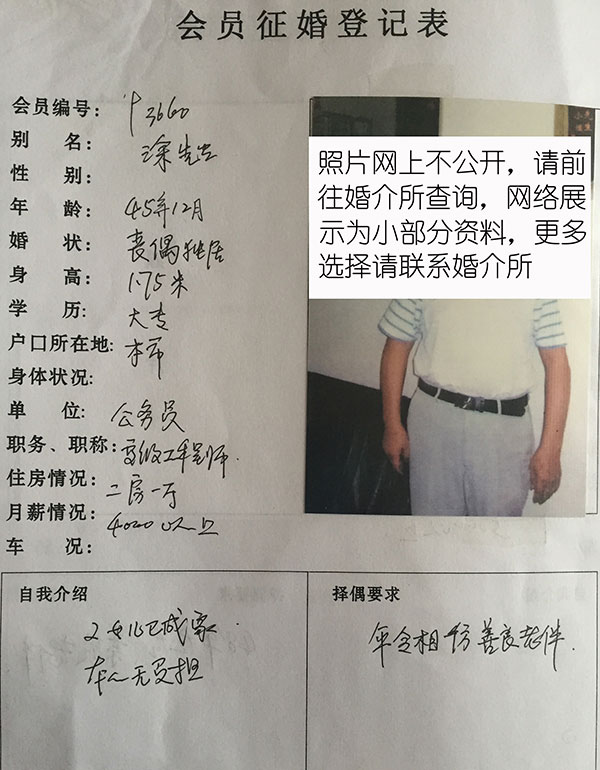 会员征婚登记表
会员编号: 3660
别 名: 涂先生
性 别:
年 龄: 45年12月
婚 状: 丧偶独居
身 高: 1.75米
学 历: 大专
户口所在地: 本市
身体状况:
单 位: 公务员
职务、职称: 高级工程师.
住房情况: 二房一厅
月薪情况: 4000以上
车 况:
照片网上不公开，请前
往婚介所查询，网络展
示为小部分资料，更多
选择请联系婚介所
自我介绍
2女儿已成家.
本人无负担
择偶要求
年令相仿善良老伴.